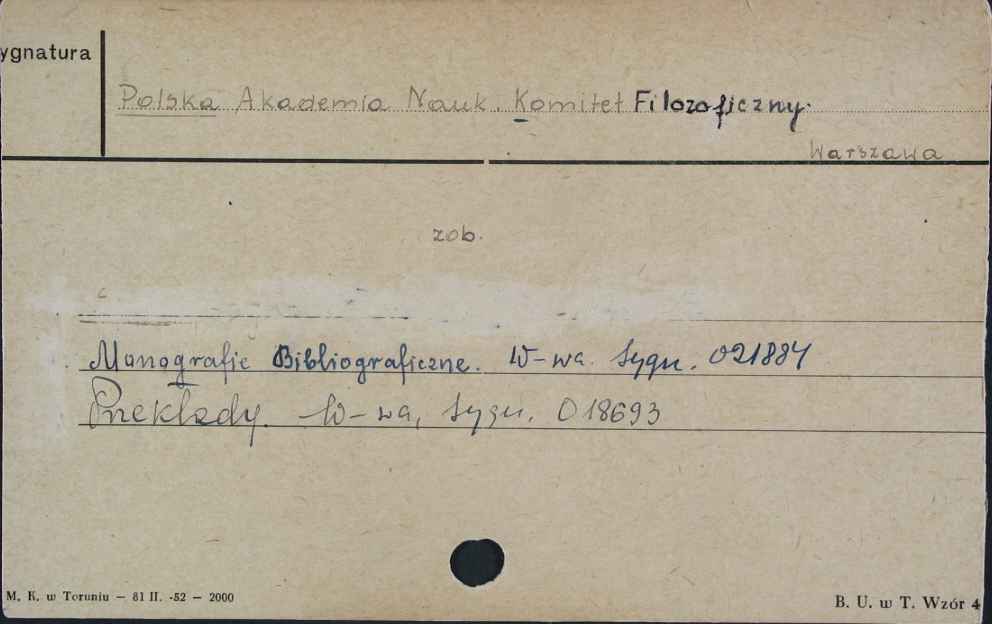 ygnatura
Polska Akademia Nauk. Komitet Filozoficzny.
Warszawa
zob.
Monografie Bibliograficzne. W-wa. Sygn. 021884
Przekłady. W-wa, Sygn. 018693
M. K. w Toruniu — 81 II. -52 — 2000
B. U. w T. Wzór 4